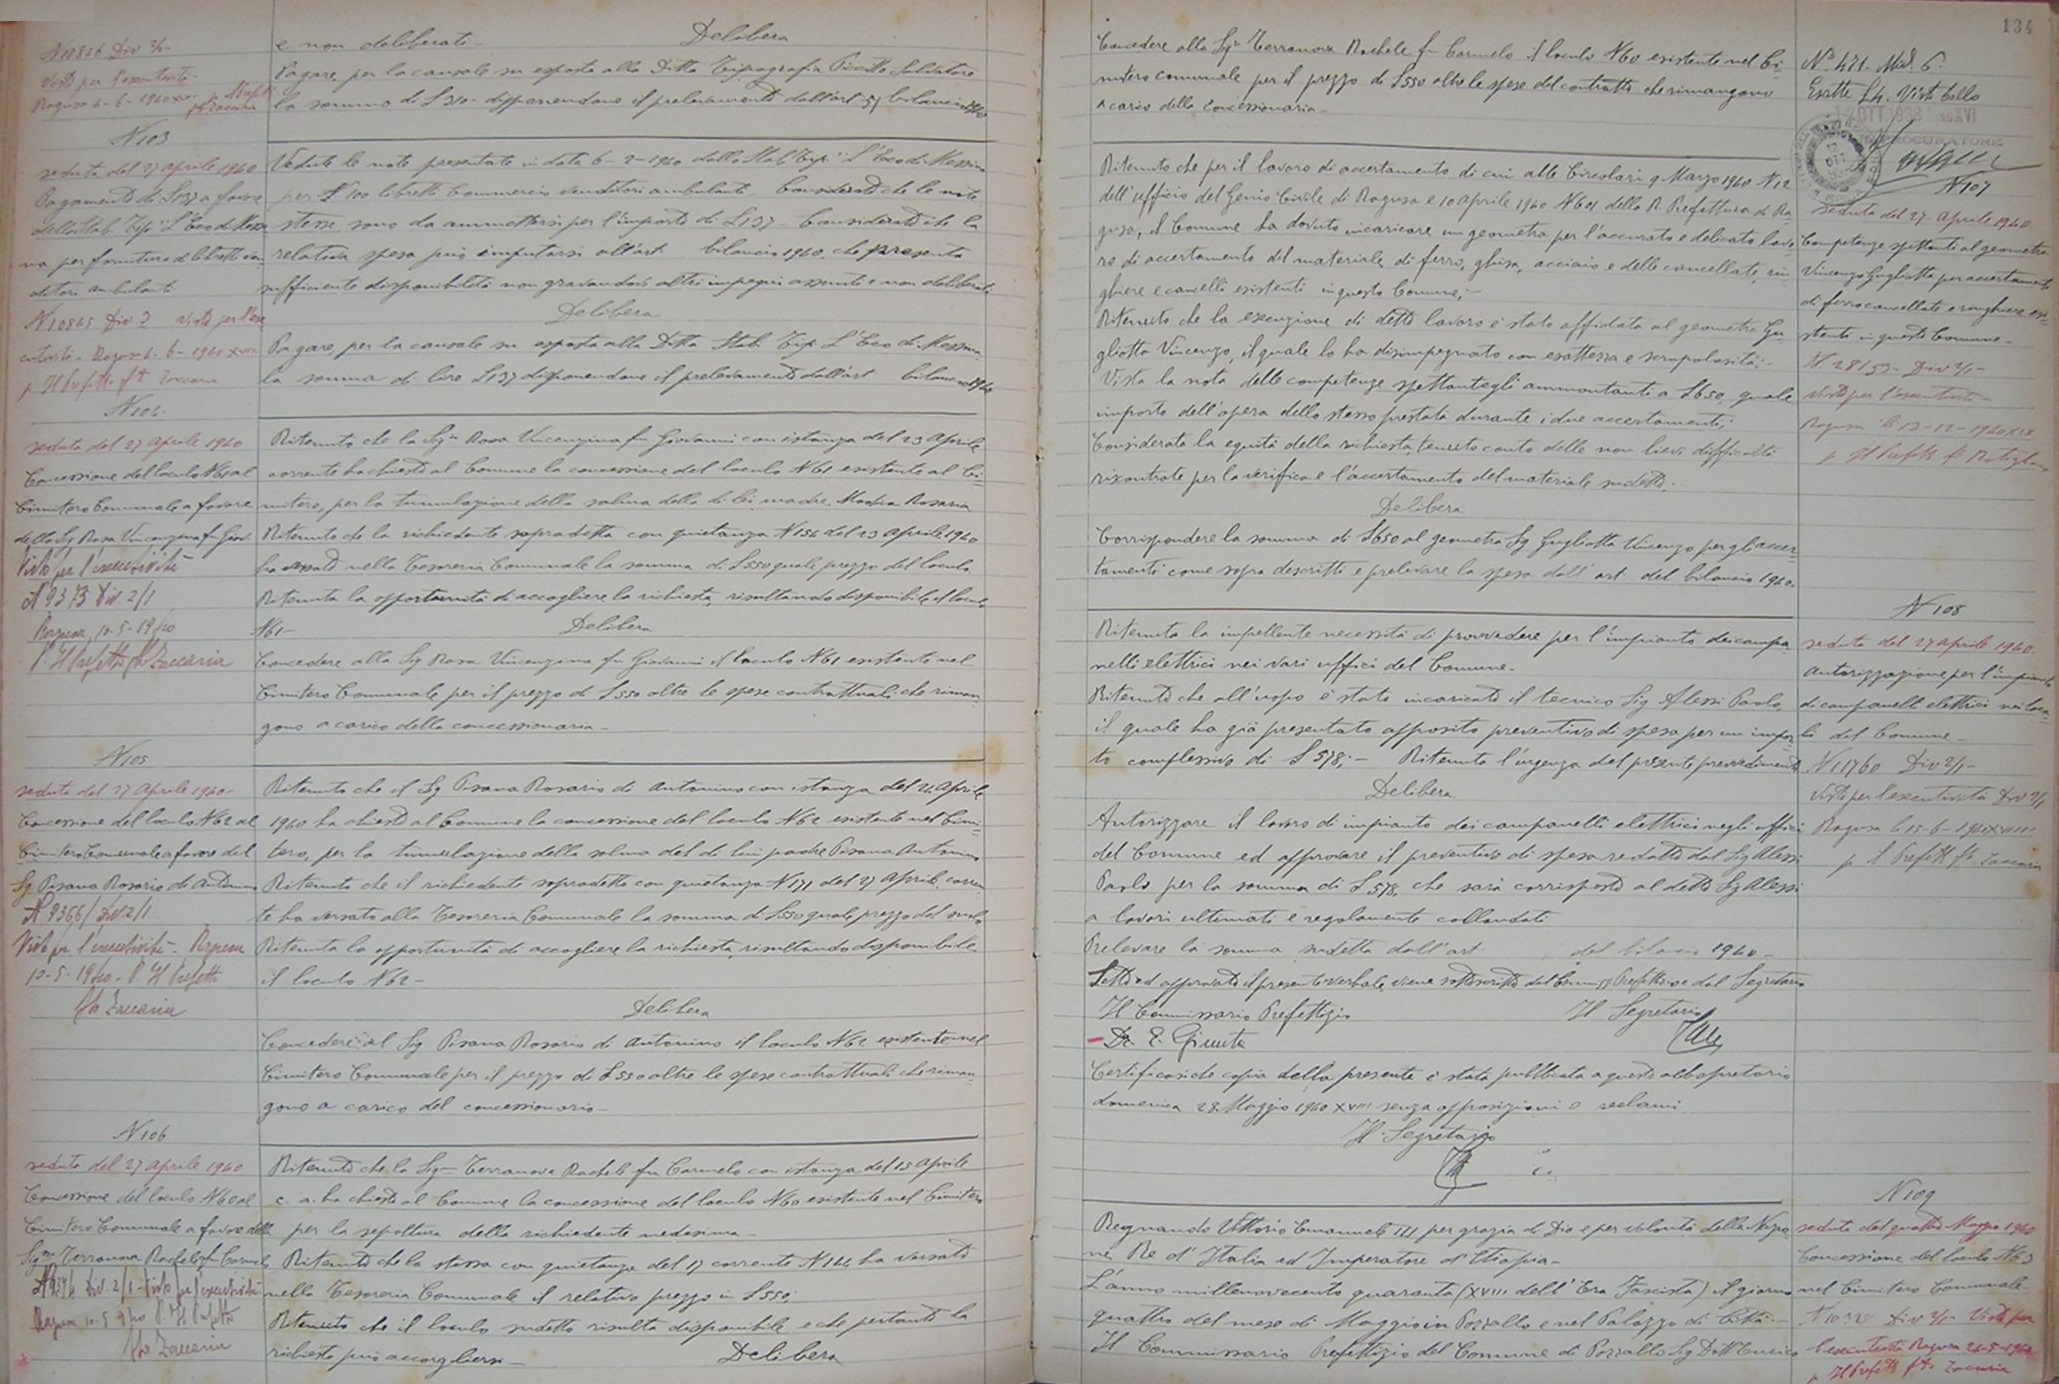 N 10846 Div 2/1-
Visto per l'esecutività-
Ragusa 6-6-1940 XVIII p. Il Prefetto
f.to Zaccaria
e non deliberati-
Delibera
Pagare, per la causale su esposta alla Ditta Tipografia Salvatore
la somma di £ 310- disponendone il prelevamento dall'art 51 bilancio 1940
N 103
seduta del 27 aprile 1940
Pagamento di £ 137 a favore
della Stab. Tip. "L'Eco di Messi
na per fornitura di libretti ven
ditori ambulanti
N 10845 Div 2 Visto per l'ese
cutività- Ragusa 6-6-1940 XVIII
p. Il Prefetto f.to Zaccaria
Vedute le note presentate in data 6-2-1940 dallo Stab. Tip. "L'Eco di Messina
per N 100 libretti Commercio venditori ambulanti- Considerato che le note
stesse sono da ammettersi per l'importo di £ 137- Considerato che la
relativa spesa può imputarsi all'art bilancio 1940, che presenta
sufficiente disponibilità non gravandovi altri impegni assunti e non deliberati
Delibera
Pagare, per la causale su esposta alla Ditta Stab. Tip. L'Eco di Messina
la somma di lire £ 137 disponendone il prelevamento dall'art bilancio 1940
N 104
seduta del 27 aprile 1940
Concessione del loculo N 61 al
Cimitero Comunale a favore
della Sig Rosa Vincenzina fu Giov.
Visto per l'esecutività
N 9373 Div. 2/1
Ragusa, 10-5-1940
P. Il Prefetto f.to Zaccaria
Ritenuto che la Sig.ra Rosa Vincenzina fu Giovanni con istanza del 23 aprile
corrente ha chiesto al Comune la concessione del loculo N 61 esistente al Ci-
mitero, per la tumulazione della salma della di lei madre Rosaria
Ritenuto che la richiedente sopradetta con quietanza N 156 del 23 aprile 1940
ha versato nella Tesoreria Comunale la somma di £ 550 quale prezzo del loculo
Ritenuta la opportunità di accogliere la richiesta, risultando disponibile il loculo
N 61-
Delibera
Concedere alla Sig Rosa Vincenzina fu Giovanni il loculo N 61 esistente nel
Cimitero Comunale per il prezzo di £ 550 oltre le spese contrattuali che riman-
gono a carico della concessionaria-
N 105
seduta del 27 aprile 1940-
Concessione del loculo N 62 al
Cimitero Comunale a favore del
Sig Pisana Rosario di Antonino
N 9366/ Div 2/1
Visto per l'esecutività- Ragusa
10-5-1940- P. Il Prefetto
f.to Zaccaria
Ritenuto che il Sig Pisana Rosario di Antonino con istanza del 24 aprile
1940 ha chiesto al Comune la concessione del loculo N 62 esistente nel Cimi-
tero, per la tumulazione della salma del di lui padre Pisana Antonino
Ritenuto che il richiedente sopradetto con quietanza N 171 del 27 aprile corren
te ha versato alla Tesoreria Comunale la somma di £ 550 quale prezzo del
Ritenuta la opportunità di accogliere la richiesta, risultando disponibile
il loculo N 62-
Delibera
Concedere al Sig Pisana Rosario di Antonino il loculo N 62 esistente nel
Cimitero Comunale per il prezzo di £ 550 oltre le spese contrattuali che riman-
gono a carico del concessionario-
N 106
seduta del 27 aprile 1940
Concessione del loculo N 60 al
Cimitero Comunale a favore della
Sig.ra Terranova Rachele fu Carmelo
N 9374 Div. 2/1- Visto per l'esecutività
Ragusa 10-5-940 P. Il Prefetto
f.to Zaccaria
Ritenuto che la Sig.ra Terranova Rachele fu Carmelo con istanza del 15 aprile
c. a. ha chiesto al Comune la concessione del loculo N 60 esistente nel Cimitero
per la sepoltura della richiedente medesima-
Ritenuto che la stessa con quietanza del 17 corrente N 144 ha versato
nella Tesoreria Comunale il relativo prezzo in £ 550;
Ritenuto che il loculo sudetto risulta disponibile e che pertanto la
richiesta può accogliersi-
Delibera
134
Concedere alla Sig.ra Terranova Rachele fu Carmelo il loculo N 60 esistente nel Ci-
mitero comunale per il prezzo di £ 550 oltre le spese del contratto che rimangono
a carico della concessionaria-
N° 471. Mod. 6.
Esatte £ 4. Visto bollo
OTT 1938 ANNO XVI
PROCURATORE
Ritenuto che per il lavoro di accertamento di cui alle Circolari 9 Marzo 1940 N 12
dell'ufficio del Genio Civile di Ragusa e 10 aprile 1940 N 601 della R. Prefettura di Ra
gusa, il Comune ha dovuto incaricare un geometra per l'accurato e delicato lavo
ro di accertamento del materiale di ferro, ghisa, acciaio e delle cancellate, rin
ghiere e cancelli esistenti in questo Comune;-
Ritenuto che la esecuzione di detto lavoro è stata affidata al geometra Gu
gliotta Vincenzo, il quale lo ha disimpegnato con esattezza e scrupolosità;-
Vista la nota delle competenze spettantegli ammontanti a £ 650, quale
importo dell'opera dello stesso prestata durante i due accertamenti;-
Considerata la equità della richiesta, tenuto conto delle non lievi difficoltà
riscontrate per la verifica e l'accertamento del materiale sudetto;-
Delibera
Corrispondere la somma di £ 650 al geometra Sig Gugliotta Vincenzo per gli accer
tamenti come sopra descritti e prelevare la spesa dall'art. del bilancio 1940.
N 107
seduta del 27 aprile 1940
Competenze spettanti al geometra
Vincenzo Gugliotta per accertamento
di ferro cancellate e ringhiere esi-
stente in questo Comune-
N 28153- Div 2/1-
Visto per l'esecutività-
Ragusa li 13-12-1940 XIX
p. Il Prefetto f.to
Ritenuta la impellente necessità di provvedere per l'impianto dei campa
nelli elettrici nei vari uffici del Comune-
Ritenuto che all'uopo è stato incaricato il tecnico Sig Alessi Paolo,
il quale ha già presentato apposito preventivo di spesa per un impor
to complessivo di £ 578;- Ritenuta l'urgenza del presente provvedimento
Delibera
Autorizzare il lavoro di impianto dei campanelli elettrici negli uffici
del Comune ed approvare il preventivo di spesa redatto dal Sig Alessi
Paolo per la somma di £ 578, che sarà corrisposto al detto Sig Alessi
a lavori ultimati e regolamente collaudati
Prelevare la somma sudetta dall'art. del bilancio 1940-
Letto ed approvato il presente verbale, viene sottoscritto dal Commiss. Prefettizio e dal Segretario
Il Commissario Prefettizio
Il Segretario
Dr. E. Giunta
Certificasi che copia della presente è stata pubblicata a questo albo pretorio
domenica 28 Maggio 1940 XVIII senza opposizioni o reclami
Il Segretario
N 108
seduta del 27 aprile 1940
autorizzazione per l'impianto
di campanelli elettrici nei loca-
li del Comune-
N 11760 Div 2/1-
Visto per l'esecutività Div 2/1
Ragusa li 15-6-1940 XVIII
p. il Prefetto f.to Zaccaria
Regnando Vittorio Emanuele III per grazia di Dio e per volontà della Nazio
ne Re d'Italia ed Imperatore d'Etiopia-
L'anno millenovecento quaranta (XVIII dell'Era Fascista) il giorno
quattro del mese di Maggio in Pozzallo e nel Palazzo di Città-
Il Commissario Prefettizio del Comune di Pozzallo Sig Dott Enrico
N 109
seduta del quattro Maggio 1940
Concessione del loculo N 63
nel Cimitero Comunale
N 10328 Div 2/1- Visto per
l'esecutività Ragusa 26-5-1940
p. Il Prefetto f.to Zaccaria